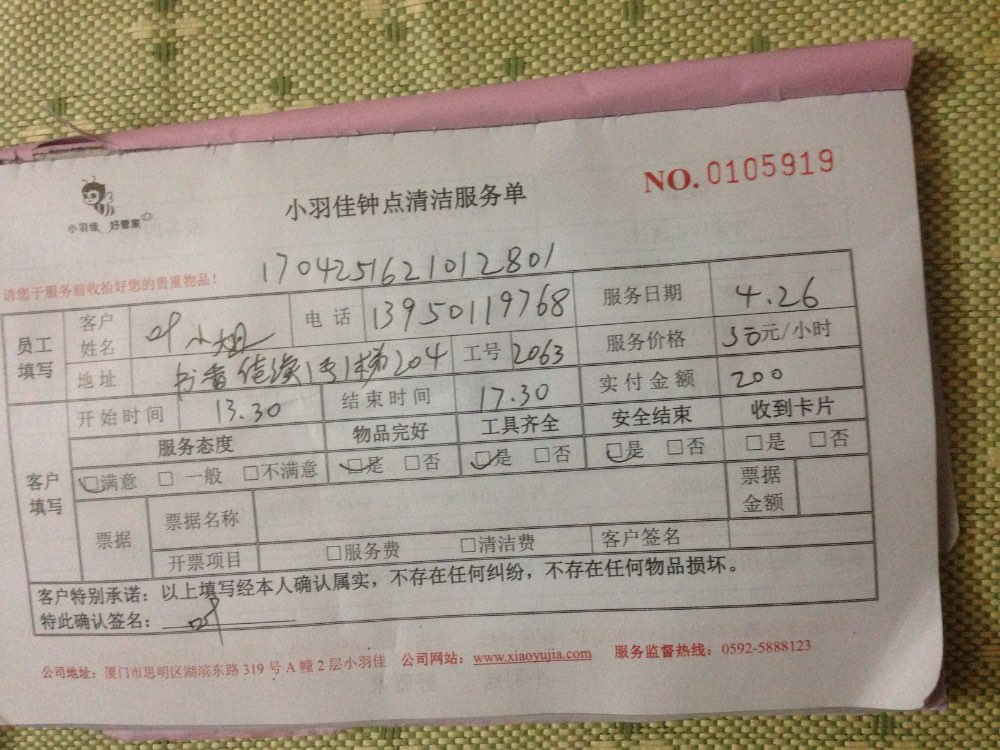 小羽佳 好管家
小羽佳钟点清洁服务单
NO. 0105919
请您于服务前收拾好您的贵重物品!
1704251621012801
员工填写 客户姓名 叶小姐 电话 13950119768 服务日期 4.26
地址 书香佳缘1号1梯204 工号 2063 服务价格 50元/小时
客户填写 开始时间 13.30 结束时间 17.30 实付金额 200
服务态度 物品完好 工具齐全 安全结束 收到卡片
□满意 □一般 □不满意 □是 □否 □是 □否 □是 □否 □是 □否
票据 票据名称 票据金额
开票项目 □服务费 □清洁费 客户签名
客户特别承诺:以上填写经本人确认属实,不存在任何纠纷,不存在任何物品损坏。
特此确认签名: 叶
公司地址:厦门市思明区湖滨东路 319 号 A 幢 2 层小羽佳 公司网站:www.xiaoyujia.com 服务监督热线:0592-5888123